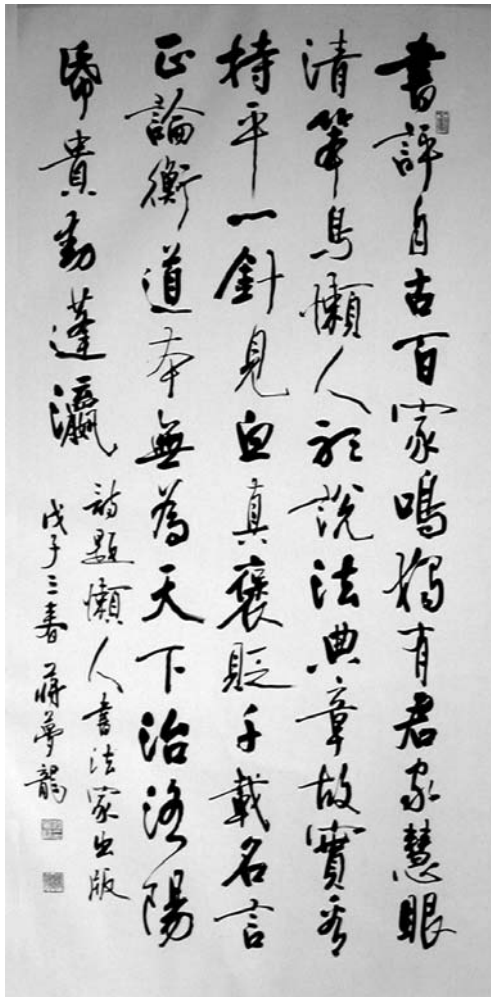 書評自古百家鳴獨有君家慧眼
清筆懶人說法典章故實
持平一針見血真褒貶千載名言
正論衡道本無為天下治洛陽
帋貴動蓬瀛
詩題懶人書法家出版
戊子三春 蔣夢龍